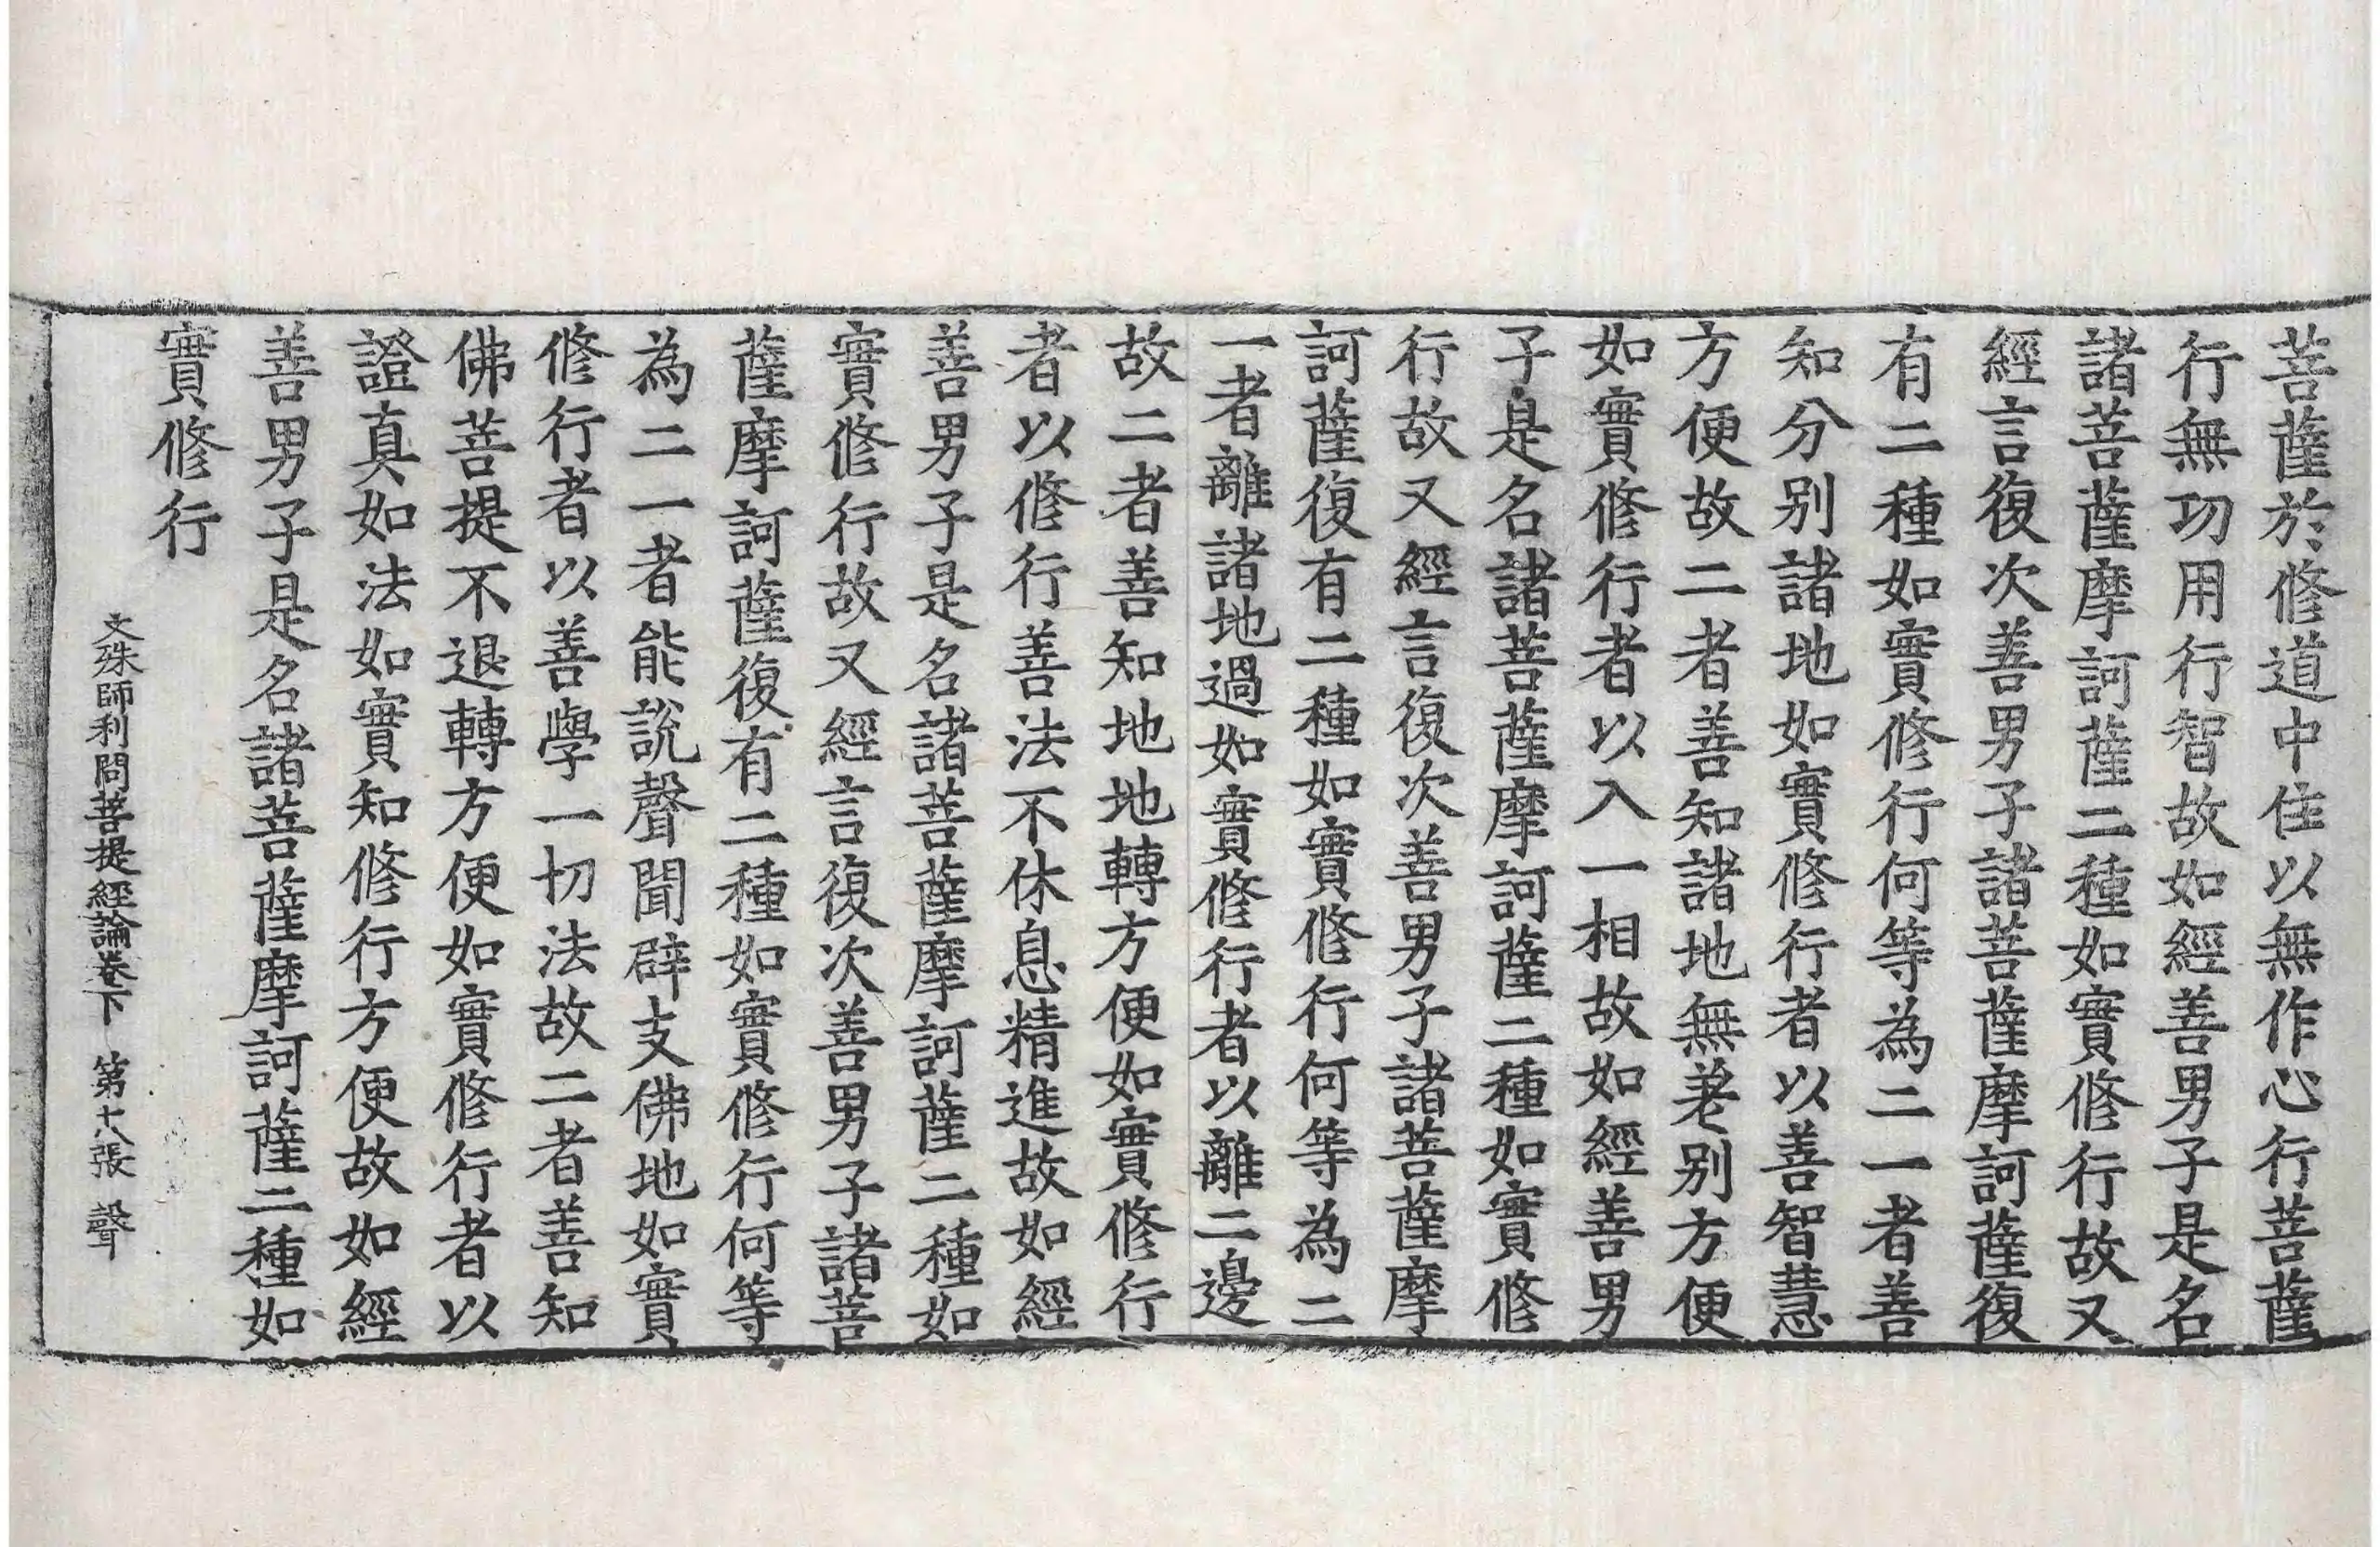 菩薩於修道中住以無作心行菩薩
行無功用行智故如經善男子是名
諸菩薩摩訶薩二種如實修行故又
經言復次善男子諸菩薩摩訶薩復
有二種如實修行何等為二一者善
知分别諸地如實修行者以善智慧
方便故二者善知諸地無差别方便
如實修行者以入一相故如經善男
子是名諸菩薩摩訶薩二種如實修
行故又經言復次善男子諸菩薩摩
訶薩復有二種如實修行何等為二
一者離諸地過如實修行者以離二邊
故二者善知地地轉方便如實修行
者以修行善法不休息精進故如經
善男子是名諸菩薩摩訶薩二種如
實修行故又經言復次善男子諸菩
薩摩訶薩復有二種如實修行何等
為二一者能說聲聞辟支佛地如實
修行者以善學一切法故二者善知
佛菩提不退轉方便如實修行者以
證真如法如實知修行方便故如經
善男子是名諸菩薩摩訶薩二種如
實修行
文殊師利問菩提經論卷下 第十八張 聲